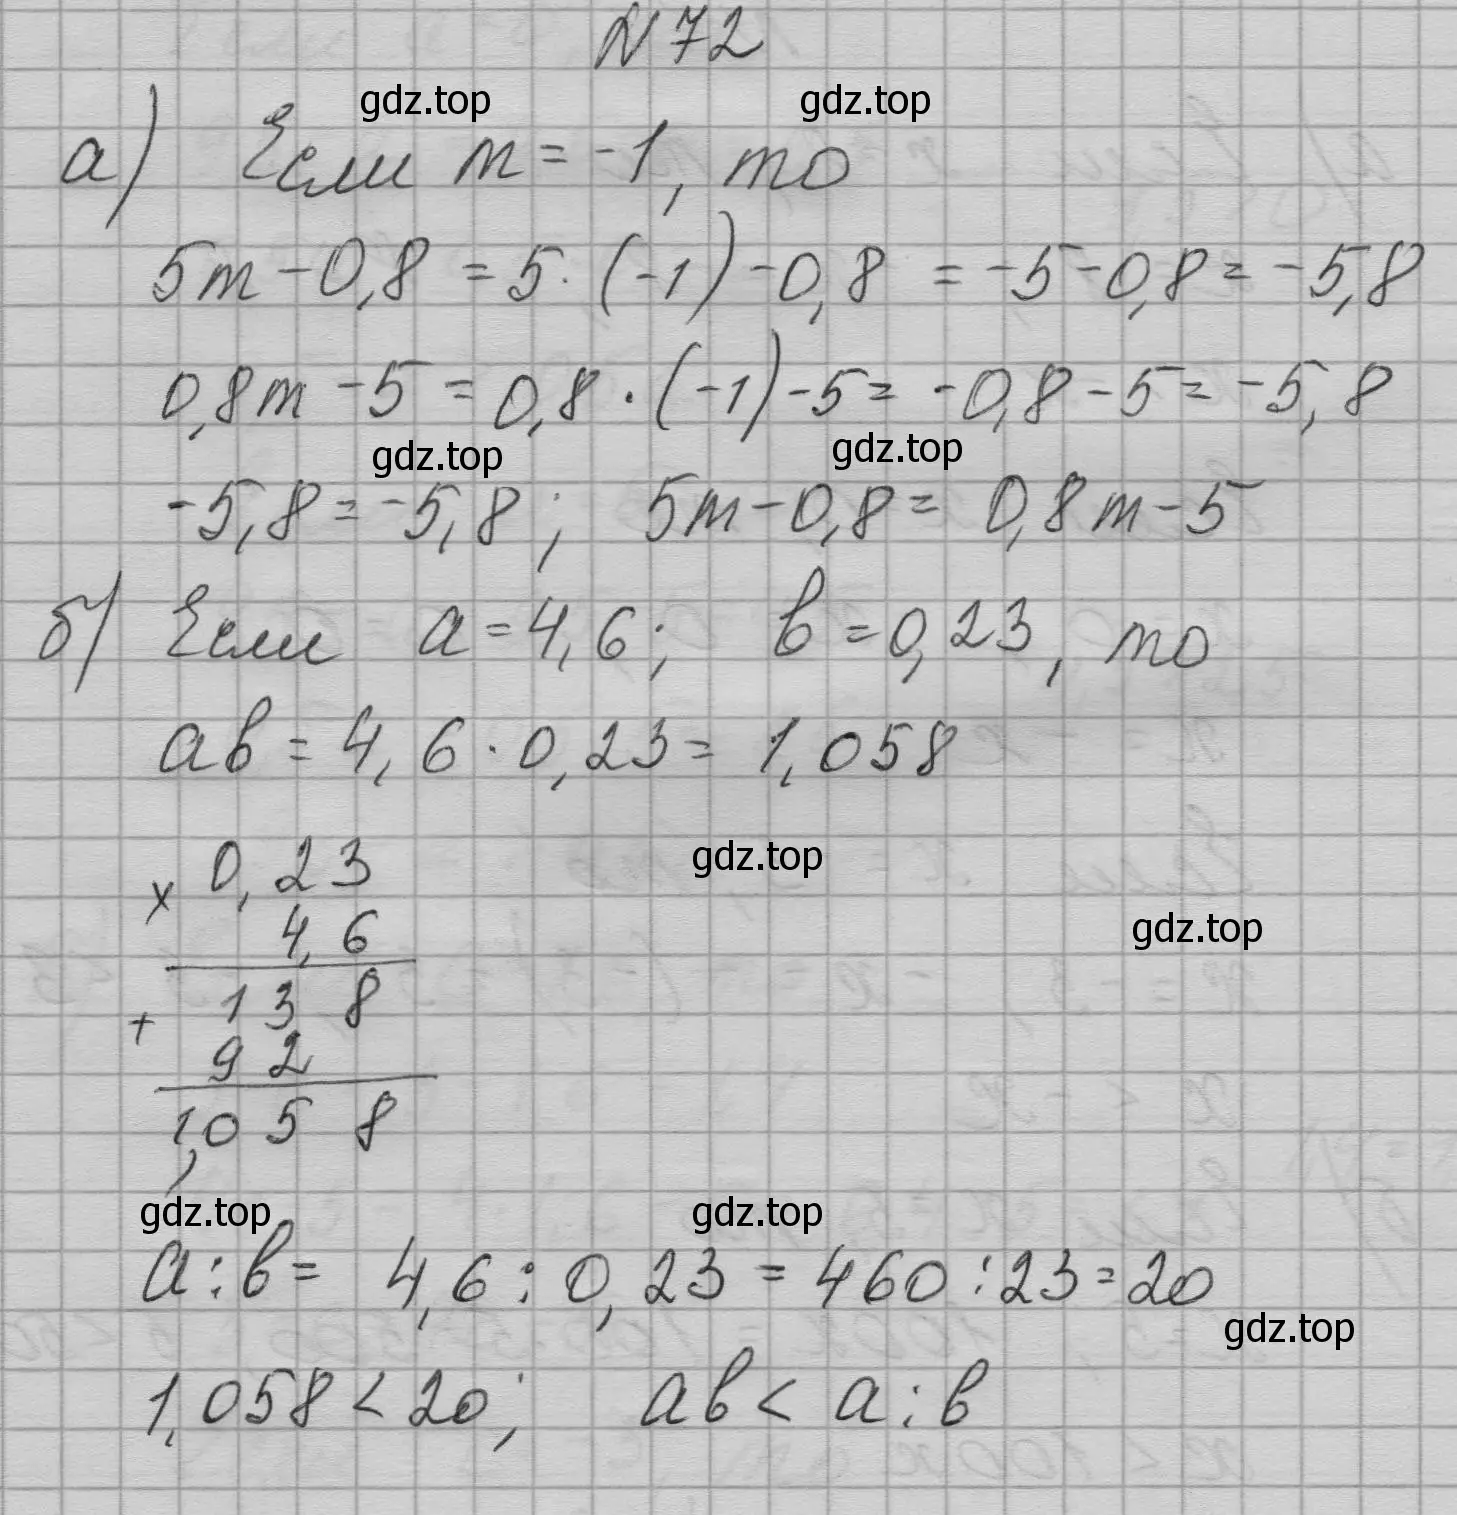 N 72
gdz.top gdz.top
а) Если m = -1, то
5m - 0,8 = 5 · (-1) - 0,8 = -5 - 0,8 = -5,8
0,8m - 5 = 0,8 · (-1) - 5 = -0,8 - 5 = -5,8
gdz.top gdz.top
-5,8 = -5,8; 5m - 0,8 = 0,8m - 5
б) Если a = 4,6; b = 0,23, то
ab = 4,6 · 0,23 = 1,058
0,23
gdz.top
x
4,6
gdz.top
138
+
92
1,058
gdz.top gdz.top
a : b = 4,6 : 0,23 = 460 : 23 = 20
gdz.top
1,058 < 20; ab < a : b